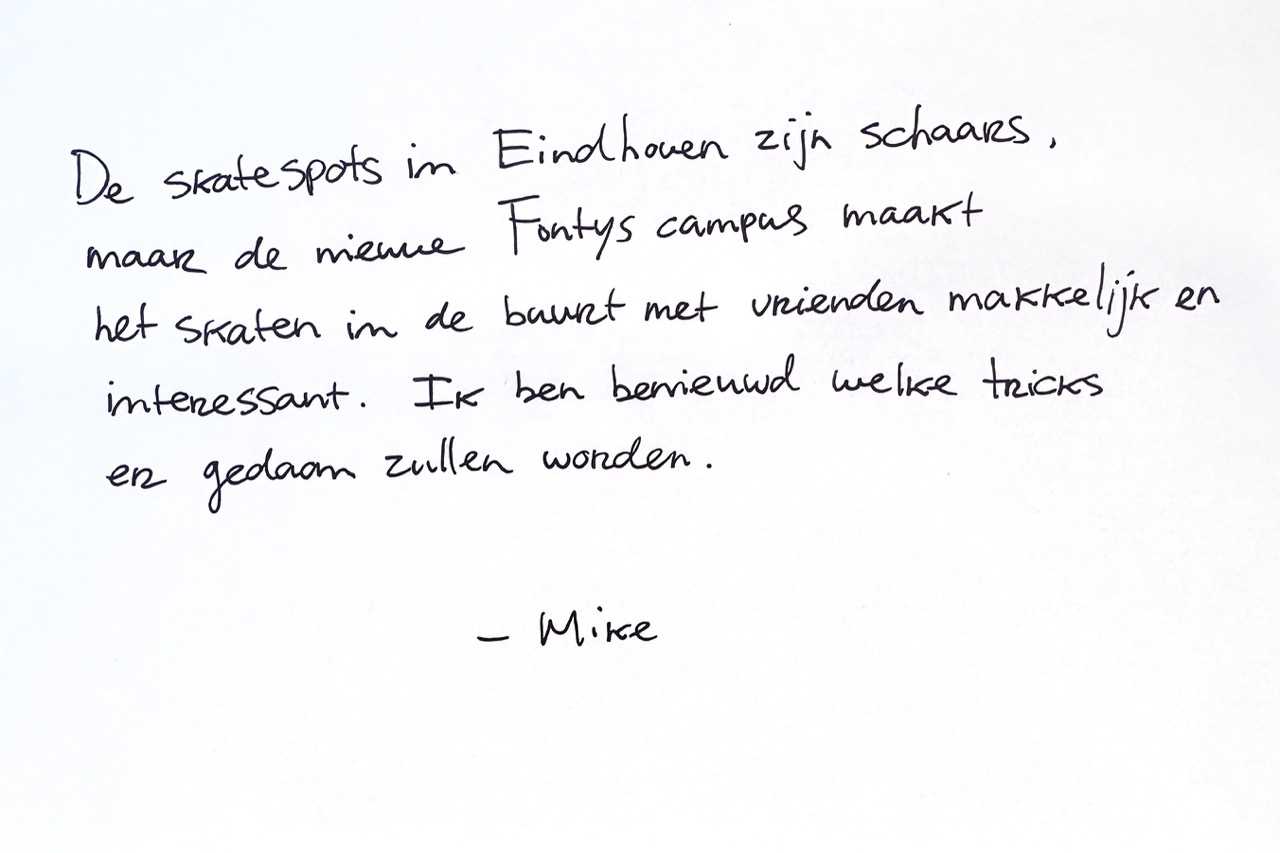 De skatespots in Eindhoven zijn schaars,
maar de nieuwe Fontys campus maakt
het skaten in de buurt met vrienden makkelijk en
interessant. Ik ben benieuwd welke tricks
er gedaan zullen worden.
- Mike